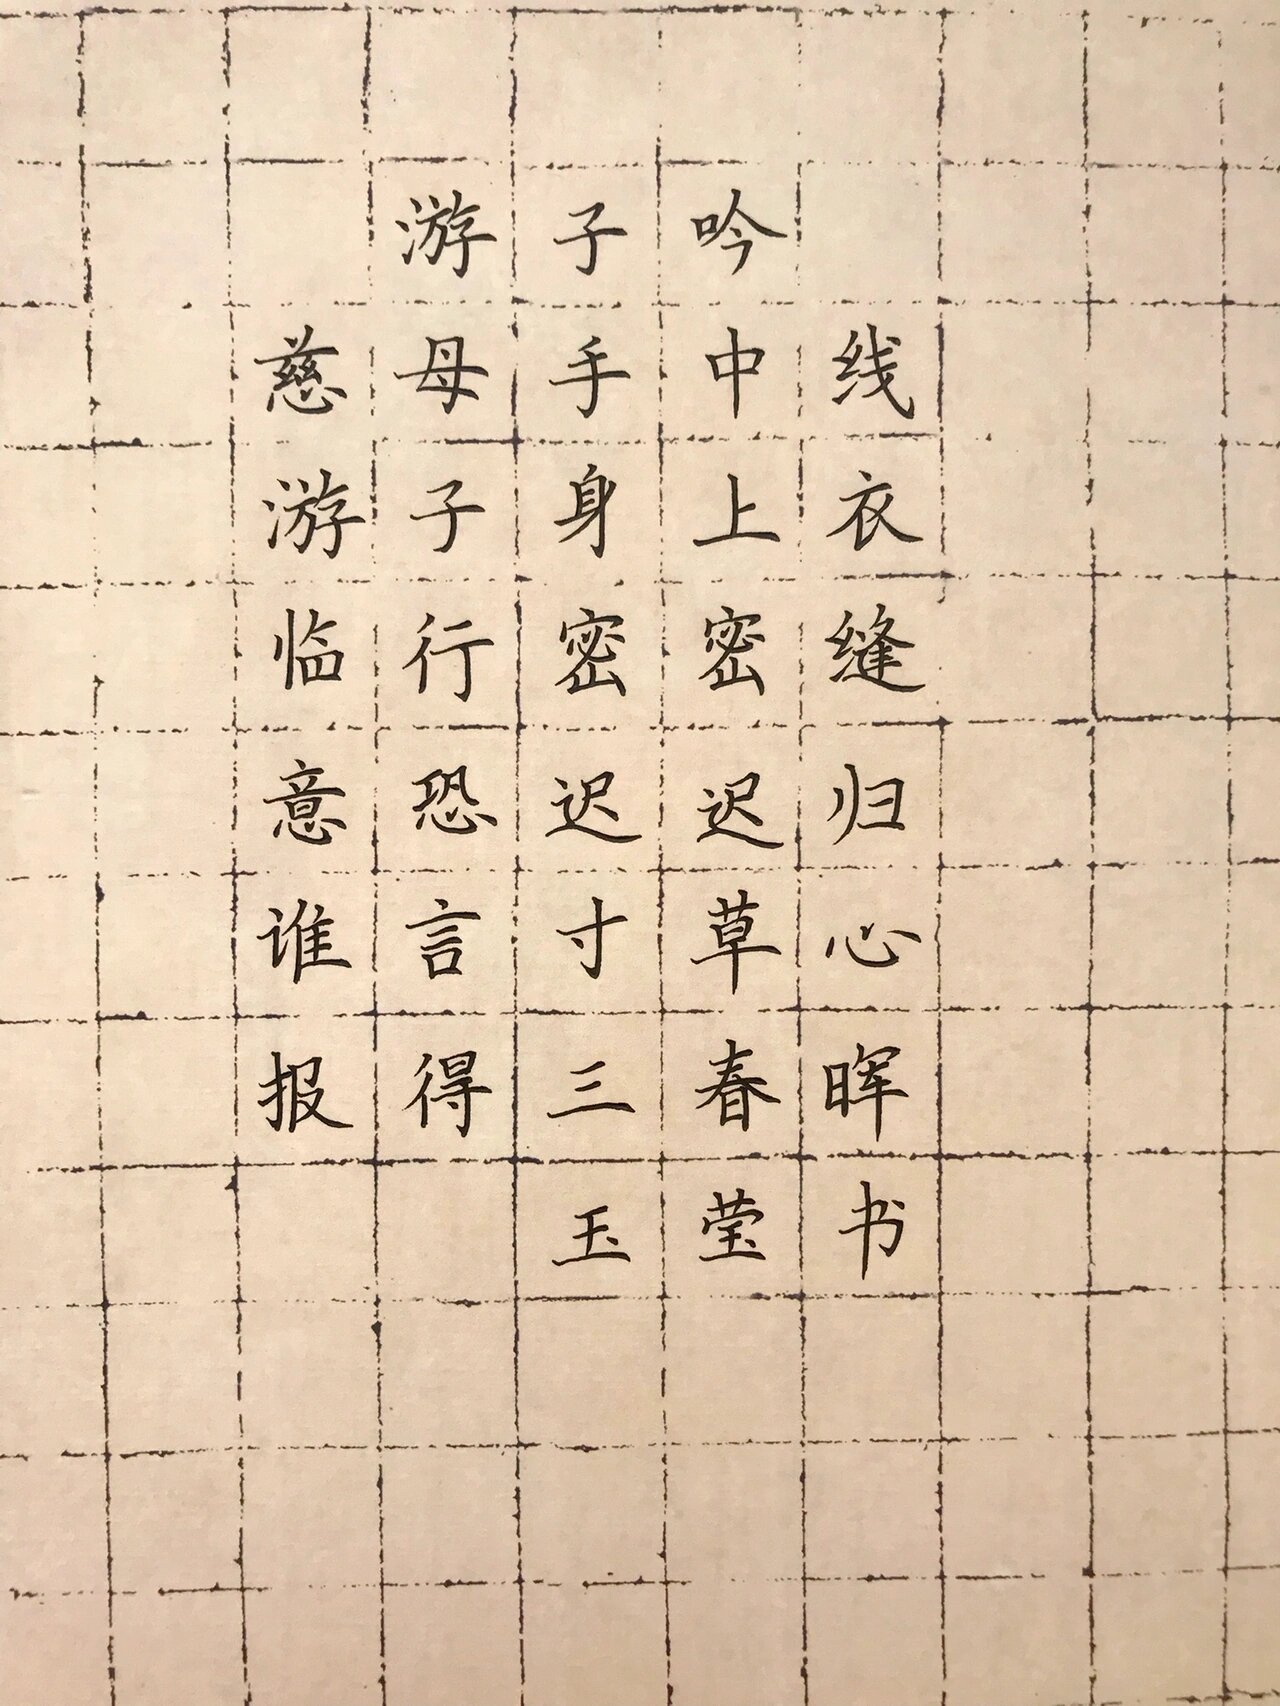 游子吟
慈母手中线
游子身上衣
临行密密缝
意恐迟迟归
谁言寸草心
报得三春晖
玉莹书